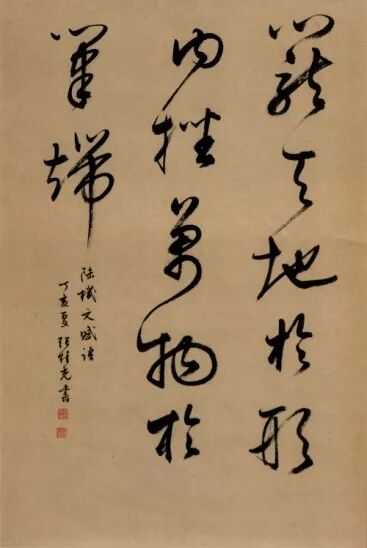 籠天地於形
内挫萬物於
筆端
陸機文賦語
丁亥夏張桂光書